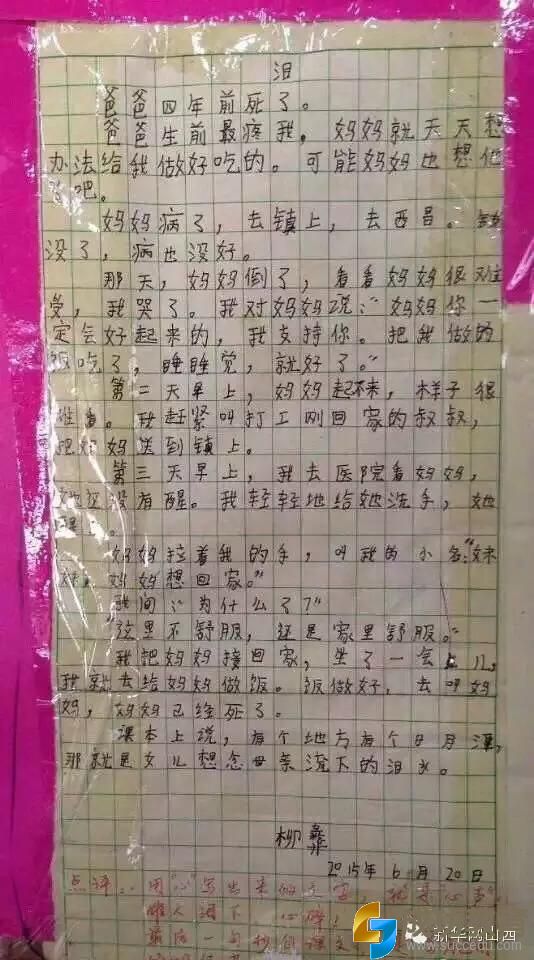 泪
爸爸四年前死了。
爸爸生前最疼我，妈妈就天天想
办法给我做好吃的。可能妈妈也想他
了吧。
妈妈病了，去镇上，去西昌。钱
没了，病也没好。
那天，妈妈倒了，看看妈妈很难
受，我哭了。我对妈妈说：“妈妈你一
定会好起来的，我支持你。把我做的
饭吃了，睡睡觉，就好了。”
第二天早上，妈妈起不来，样子很
难看。我赶紧叫打工刚回家的叔叔，
把妈妈送到镇上。
第三天早上，我去医院看妈妈，
她还没有醒。我轻轻地给她洗手，她
醒了。
妈妈拉着我的手，叫我的小名：“妹
妹，妈妈想回家。”
我问：“为什么了？”
“这里不舒服，还是家里舒服。”
我把妈妈接回家，坐了一会儿，
我就去给妈妈做饭。饭做好，去叫妈
妈，妈妈已经死了。
课本上说，有个地方有个日月潭，
那就是女儿想念母亲流下的泪水。
柳彝
2015年6月20日
点评：用“心”写出来的文字，就是“心声”，
催人泪下，心碎！
最后一句
新华网山西
www.succedu.com